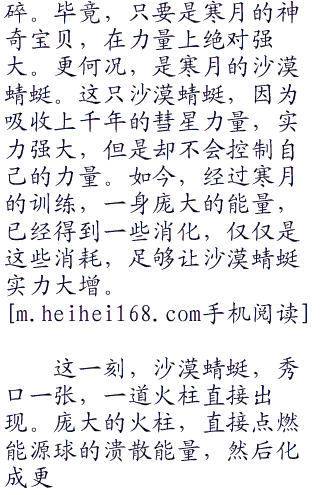 碎。毕竟，只要是寒月的神
奇宝贝，在力量上绝对强
大。更何况，是寒月的沙漠
蜻蜓。这只沙漠蜻蜓，因为
吸收上千年的彗星力量，实
力强大，但是却不会控制自
己的力量。如今，经过寒月
的训练，一身庞大的能量，
已经得到一些消化，仅仅是
这些消耗，足够让沙漠蜻蜓
实力大增。
[m.heihei168.com手机阅读]
这一刻，沙漠蜻蜓，秀
口一张，一道火柱直接出
现。庞大的火柱，直接点燃
能源球的溃散能量，然后化
成更